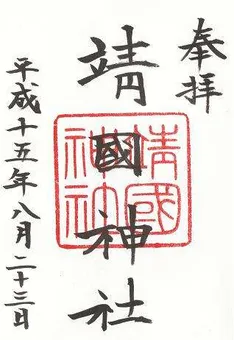 奉拝
靖國神社
靖國神社
平成十五年八月二十三日